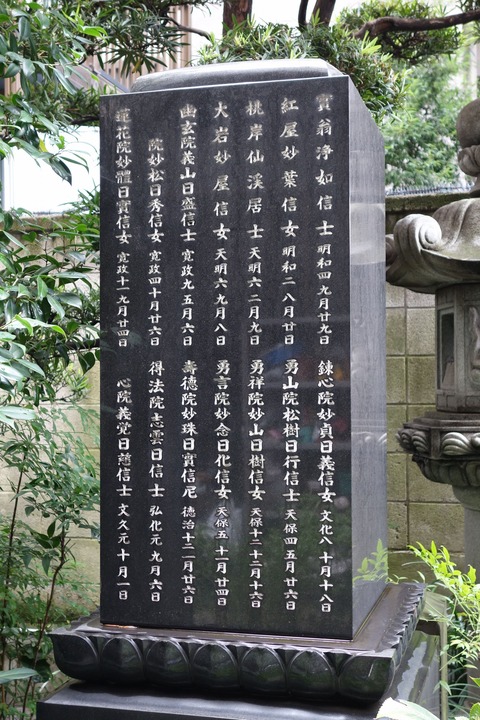 寳翁浄如信士 明和四 九月廿九日
紅屋妙葉信女 明和二 八月廿日
桃岸仙溪居士 天明六 二月九日
大岩妙屋信女 天明六 九月八日
幽玄院義山日盛信士 寛政九 五月六日
院妙松日秀信女 寛政四 十月廿六日
蓮花院妙體日實信女 寛政十一 九月廿四日
錬心院妙貞日義信女 文化八 十月十八日
勇山院松樹日行信士 天保四 五月廿六日
勇祥院妙山日樹信女 天保十二 十二月十六日
勇言院妙念日化信女 天保五 十一月廿四日
壽德院妙珠日實信尼 德治十二 一月廿六日
得法院志雲日信士 弘化元 九月六日
心院義覚日慈信士 文久元 十月一日